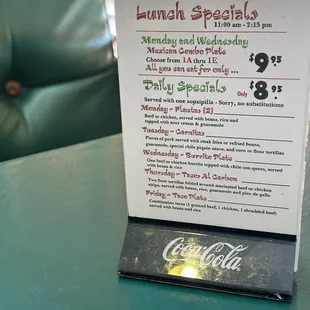 Lunch Specials
11:00 am - 2:15 pm
Monday and Wednesday
Mexican Combo Plate
Choose from 1A thru 1E
All you can eat for only ...
$9.95
Daily Specials
Only $8.95
Served with one sopaipilla - Sorry, no substitutions
Monday - Flautas (2)
Beef or chicken, served with beans, rice and
topped with sour cream & guacamole
Tuesday - Carnitas
Pieces of pork served with steak fries or refried beans,
guacamole, special chile piquin sauce, and corn or flour tortillas
Wednesday - Burrito Plate
One beef or chicken burrito topped with chile con queso, served
with beans and rice
Thursday - Tacos Al Carbon
Two flour tortillas folded around marinated beef or chicken
strips, served with beans, rice, guacamole and pico de gallo
Friday - Taco Plate
Combination tacos (1 ground beef, 1 chicken, 1 shredded beef)
served with beans and rice
Coca-Cola